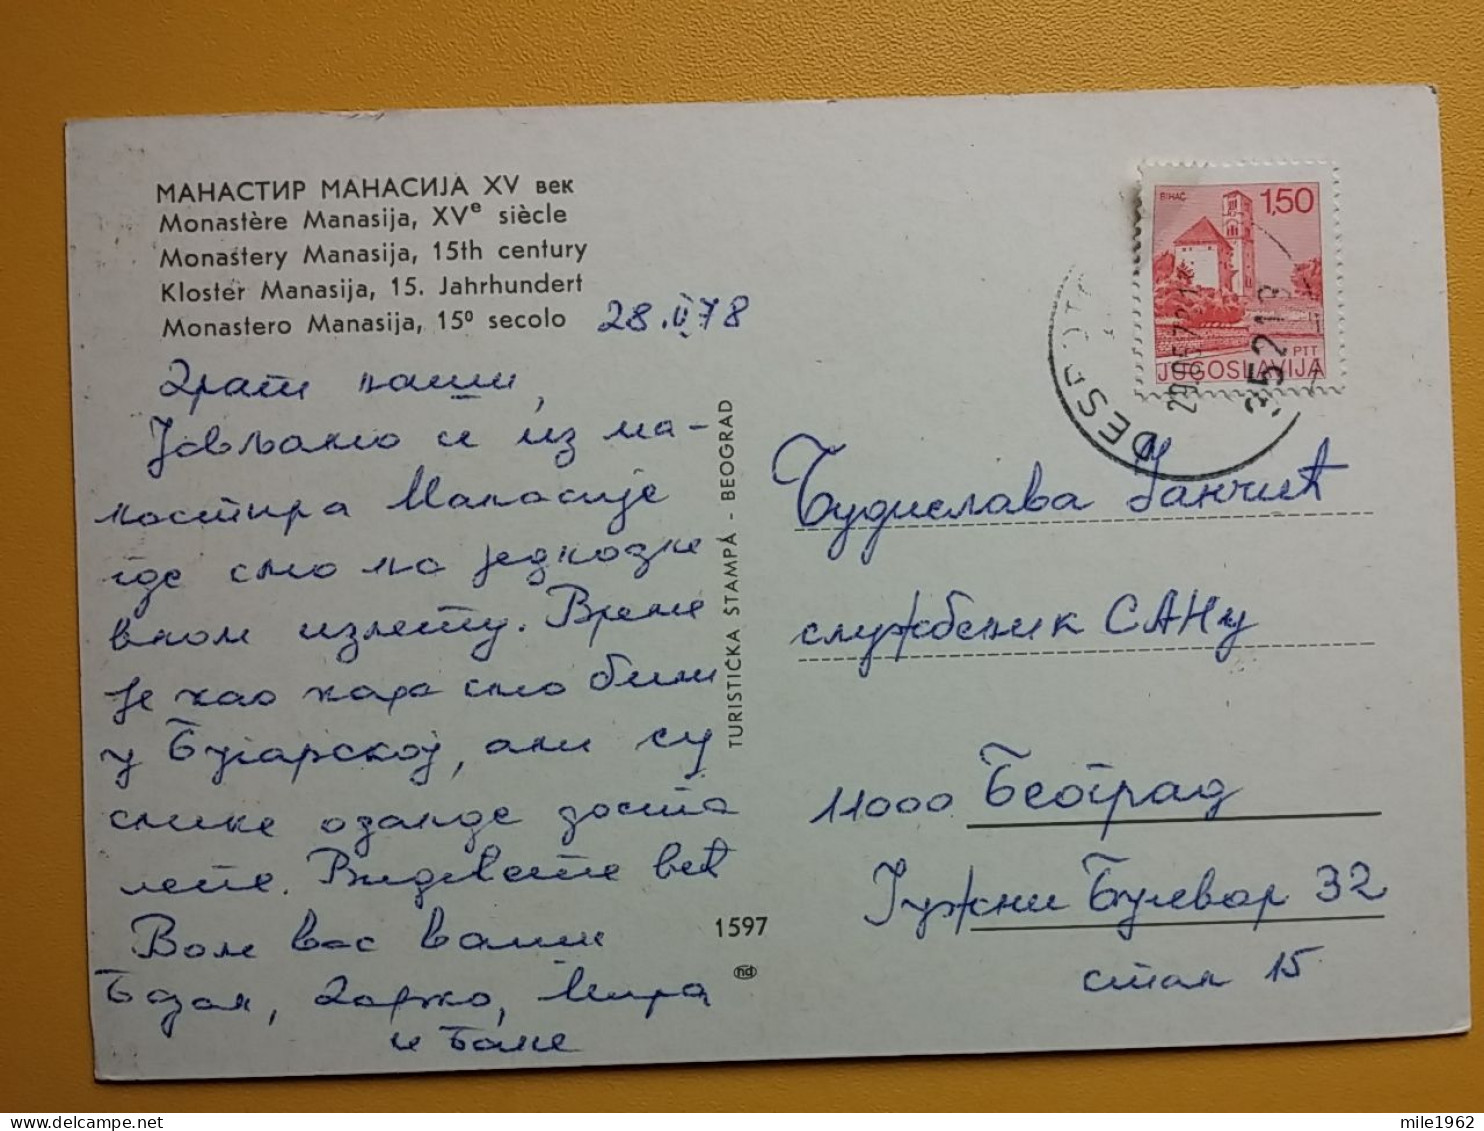 МАНАСТИР МАНАСИЈА XV век
Monastère Manasija, XVe siècle
Monastery Manasija, 15th century
Kloster Manasija, 15. Jahrhundert
Monastero Manasija, 15º secolo
28.V 78
Драги наши,
Јављамо се из ма-
настира Манасије
где смо на једнодне
вном излету. Време
је као када смо били
у Бугарској, али су
слике одавде доста
лепе. Видећете већ
Воле вас ваши
Бозал, Дарко, Мира
и Бане
TURISTIČKA ŠTAMPA - BEOGRAD
1597
nd
BIHAĆ
1,50
PTT
JUGOSLAVIJA
DESPOTO
35213
Будислава Јанчић
службеник САНУ
11000 Београд
Јужни Булевар 32
стан 15
mile1962